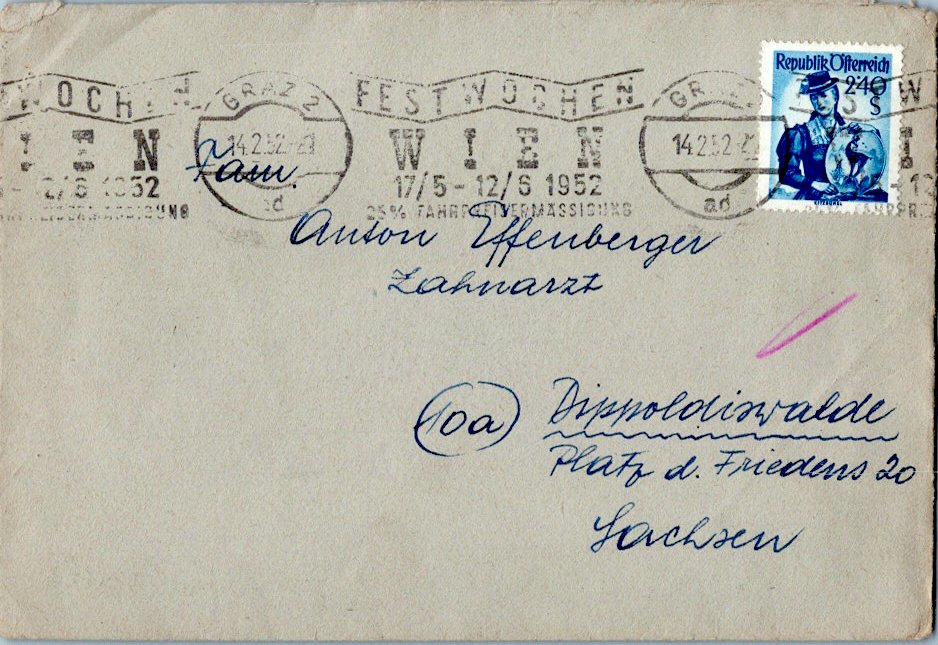 WOCHEN
IEN
- 12/6 1952
GRAZ 2
14.2.52
ad
FESTWOCHEN
WIEN
17/5 - 12/6 1952
25% FAHRPREISERMÄSSIGUNG
GRAZ
14.2.52
ad
Republik Österreich
2·40
S
Fam.
Anton Effenberger
Zahnarzt
10a Dippoldiswalde
Platz d. Friedens 20
Sachsen